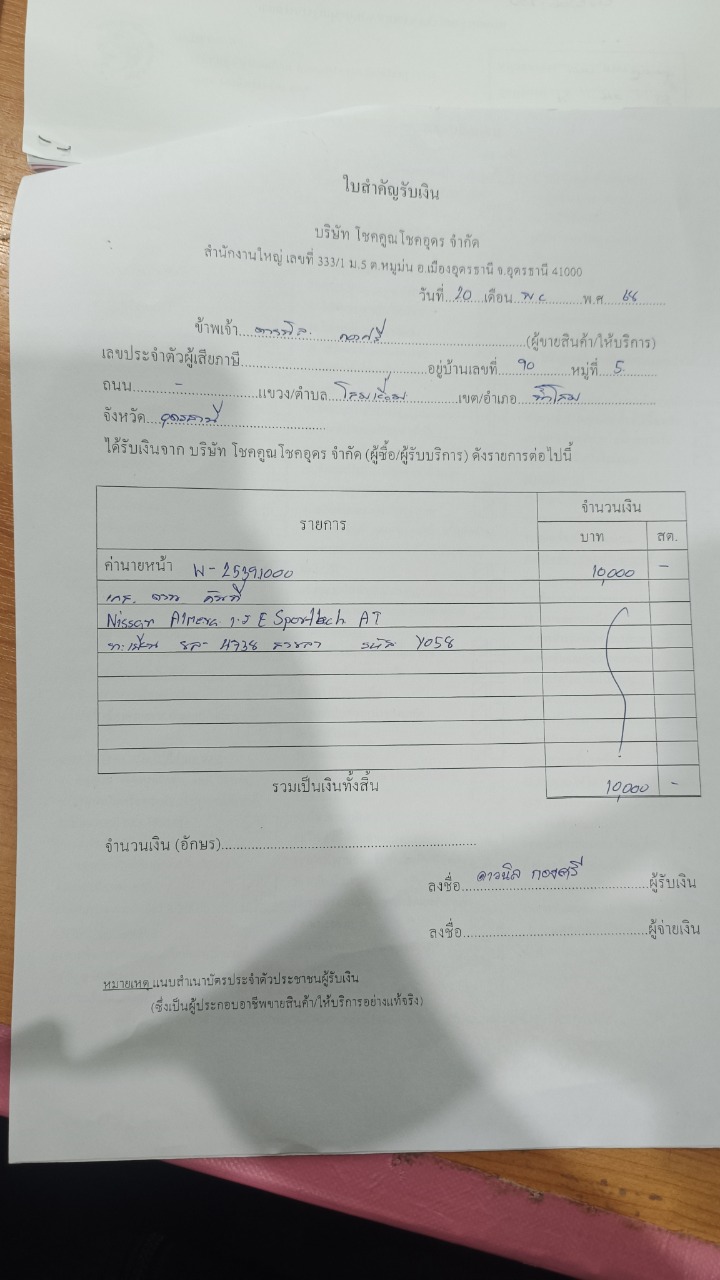 ใบสำคัญรับเงิน
บริษัท โชคคูณโชคอุดร จำกัด
สำนักงานใหญ่ เลขที่ 333/1 ม.5 ต.หมูม่น อ.เมืองอุดรธานี จ.อุดรธานี 41000
วันที่ 20 เดือน พ.ย พ.ศ. 68
ข้าพเจ้า (ผู้ขายสินค้า/ให้บริการ)
เลขประจำตัวผู้เสียภาษี อยู่บ้านเลขที่ 90 หมู่ที่ 5
ถนน - แขวง/ตำบล เขต/อำเภอ น้ำโสม
จังหวัด อุดรธานี
ได้รับเงินจาก บริษัท โชคคูณโชคอุดร จำกัด (ผู้ซื้อ/ผู้รับบริการ) ดังรายการต่อไปนี้
รายการ จำนวนเงิน
บาท สต.
ค่านายหน้า 10,000 -
Nissan Almera 1.5 E Sporttech AT
4738 รหัส Y058
รวมเป็นเงินทั้งสิ้น 10,000 -
จำนวนเงิน (อักษร)
ลงชื่อ ผู้รับเงิน
ลงชื่อ ผู้จ่ายเงิน
หมายเหตุ แนบสำเนาบัตรประจำตัวประชาชนผู้รับเงิน
(ซึ่งเป็นผู้ประกอบอาชีพขายสินค้า/ให้บริการอย่างแท้จริง)